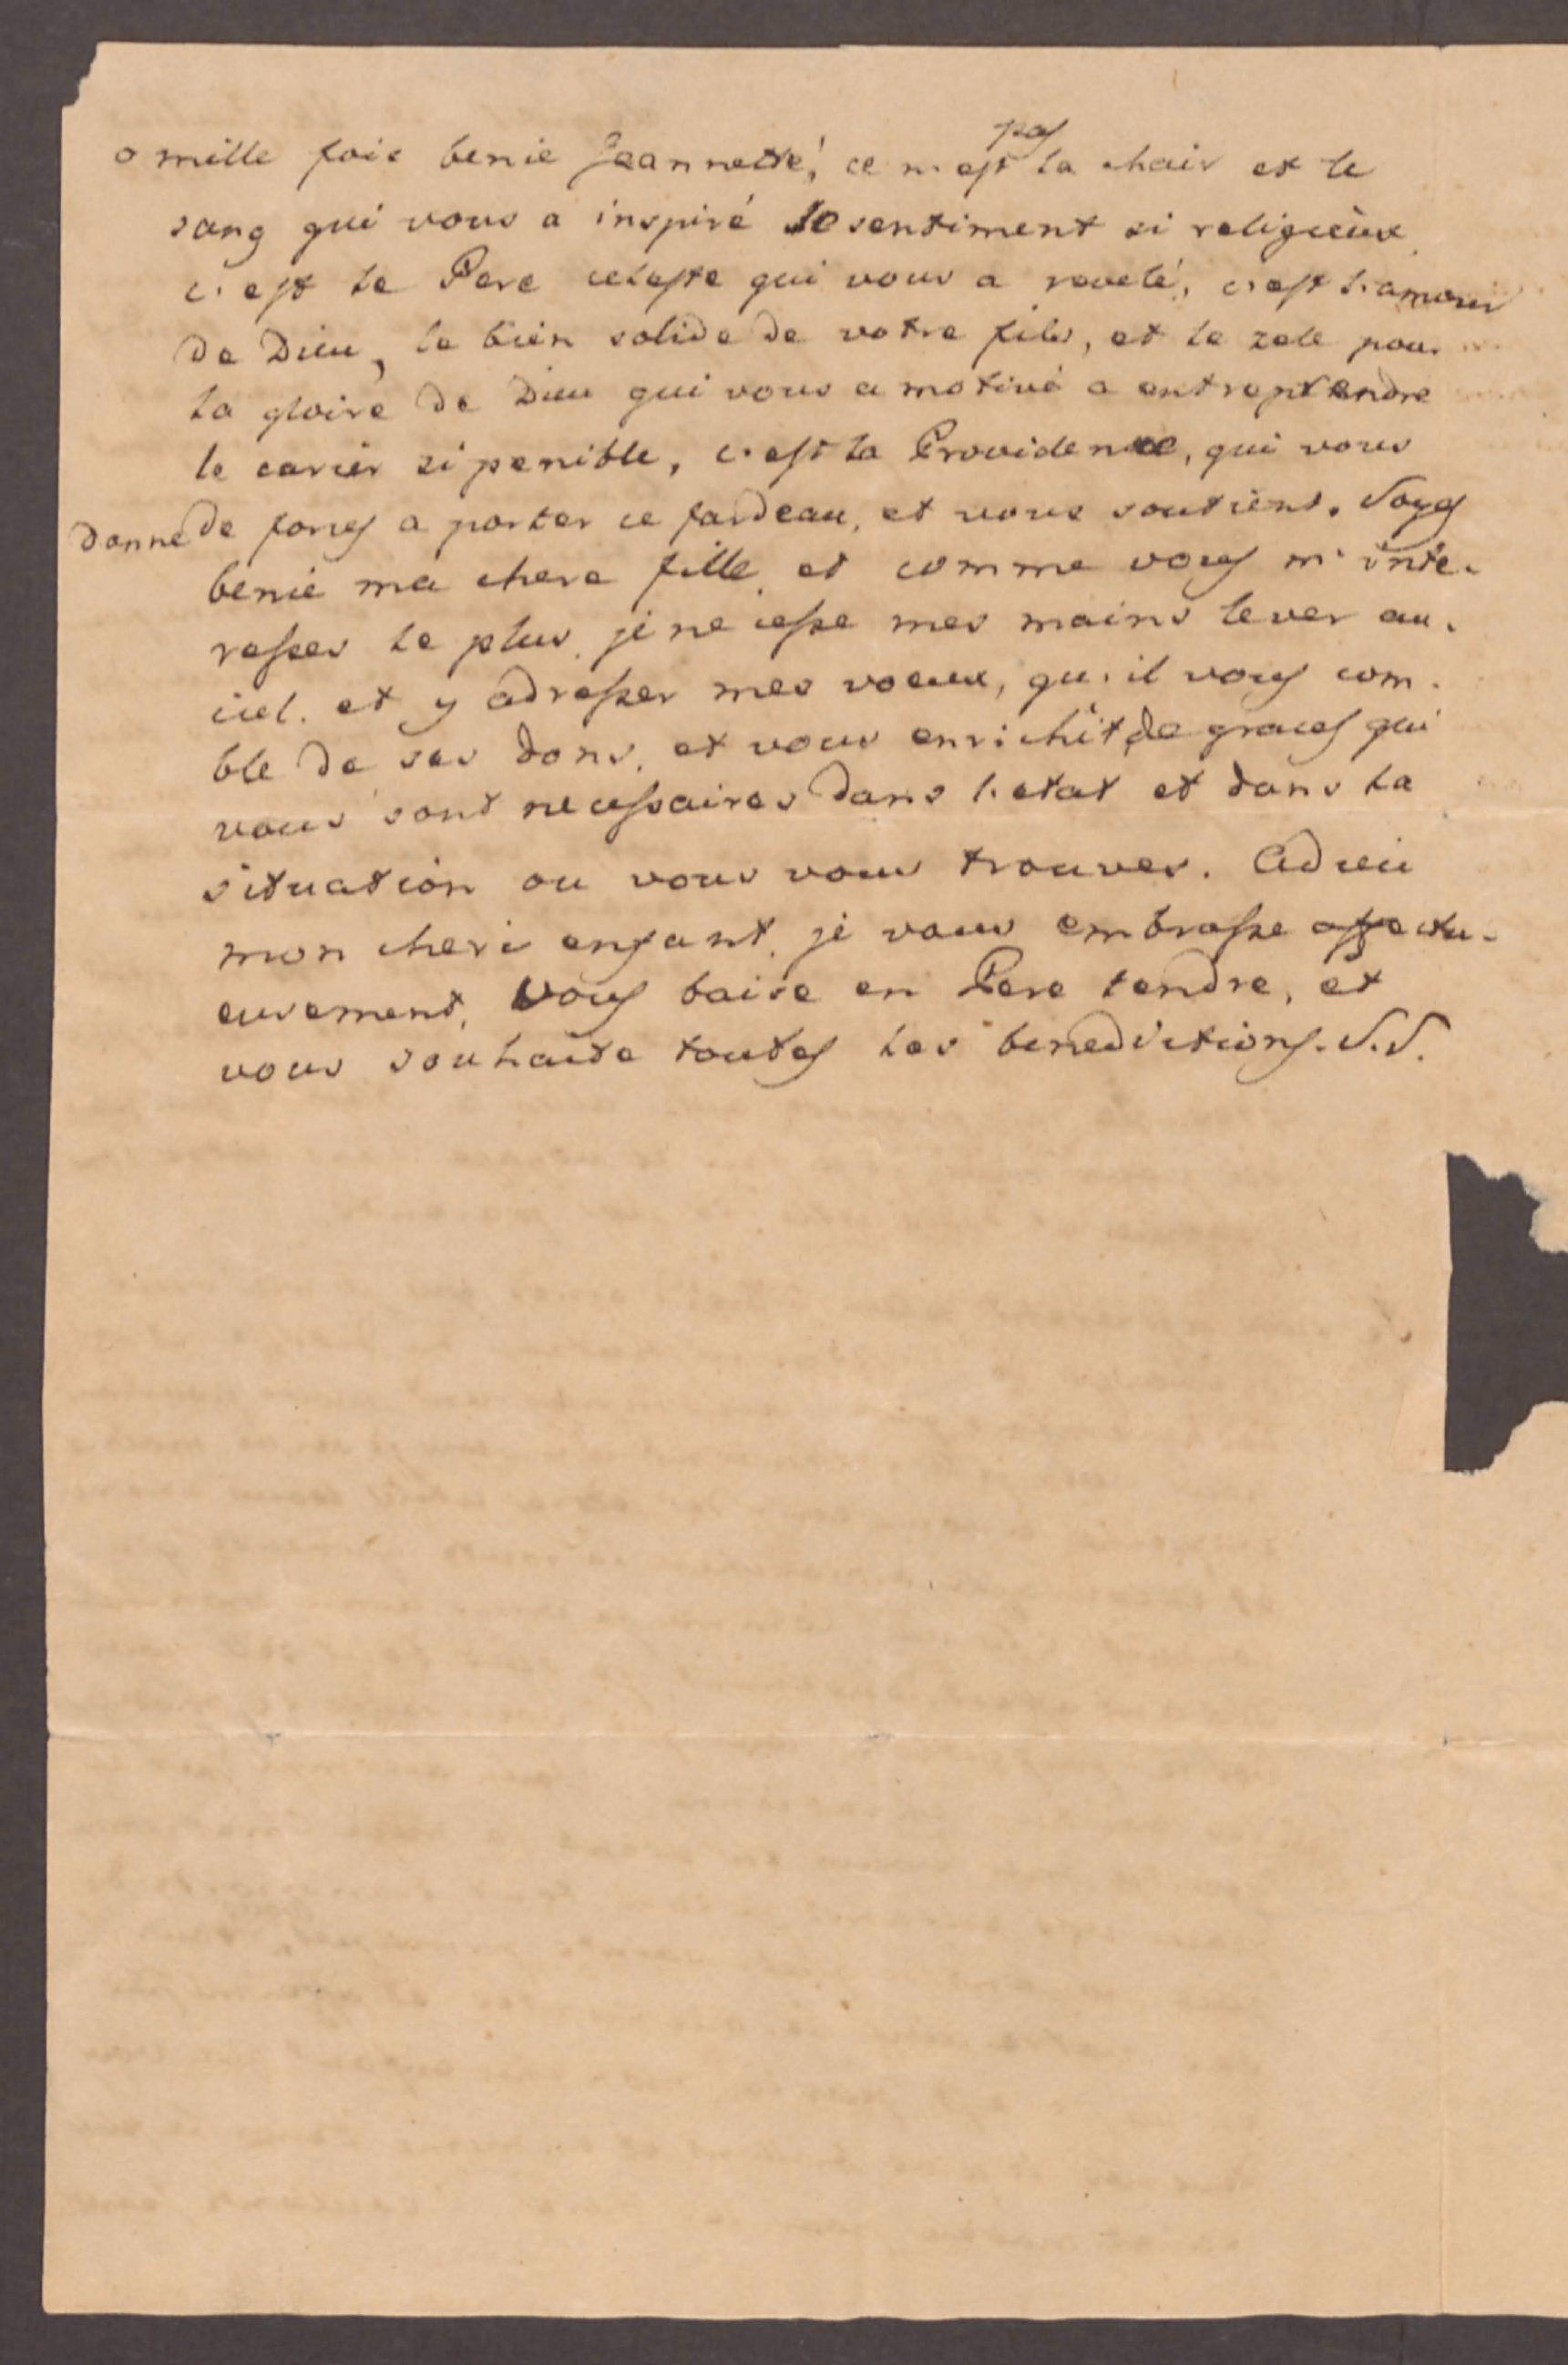 o mille fois benie Jeannette! ce n'est pas la chair et le
sang qui vous a inspiré le sentiment si religieux
c'est le Pere celeste qui vous a revelé, c'est l'amour
de Dieu, le bien solide de votre fils, et le zele pour
la gloire de Dieu qui vous a motivé a entreprendre
le carier si penible, c'est la Providence, qui vous
donne de forces a porter ce fardeau, et vous soutient. Soyes
benie ma chere fille et comme vous m'inte-
resses le plus, je ne cesse mes mains lever au
ciel. et y adresser mes voeux, qu'il vous com-
ble de ses dons, et vous enrichit de graces qui
vous sont necessaires dans l'etat et dans la
situation ou vous vous trouves. Adieu
mon cheri enfant, je vous embrasse affectu-
eusement, vous baise en Pere tendre, et
vous souhaite toutes les benedictions. S.S.